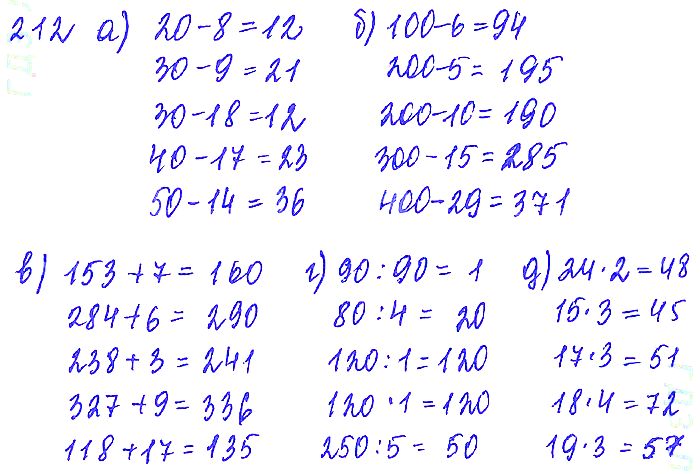 212 а) 20-8=12 б) 100-6=94
30-9=21 200-5=195
30-18=12 200-10=190
40-17=23 300-15=285
50-14=36 400-29=371
в) 153+7=160 г) 90:90=1 д) 24·2=48
284+6=290 80:4=20 15·3=45
238+3=241 120:1=120 17·3=51
327+9=336 120·1=120 18·4=72
118+17=135 250:5=50 19·3=57